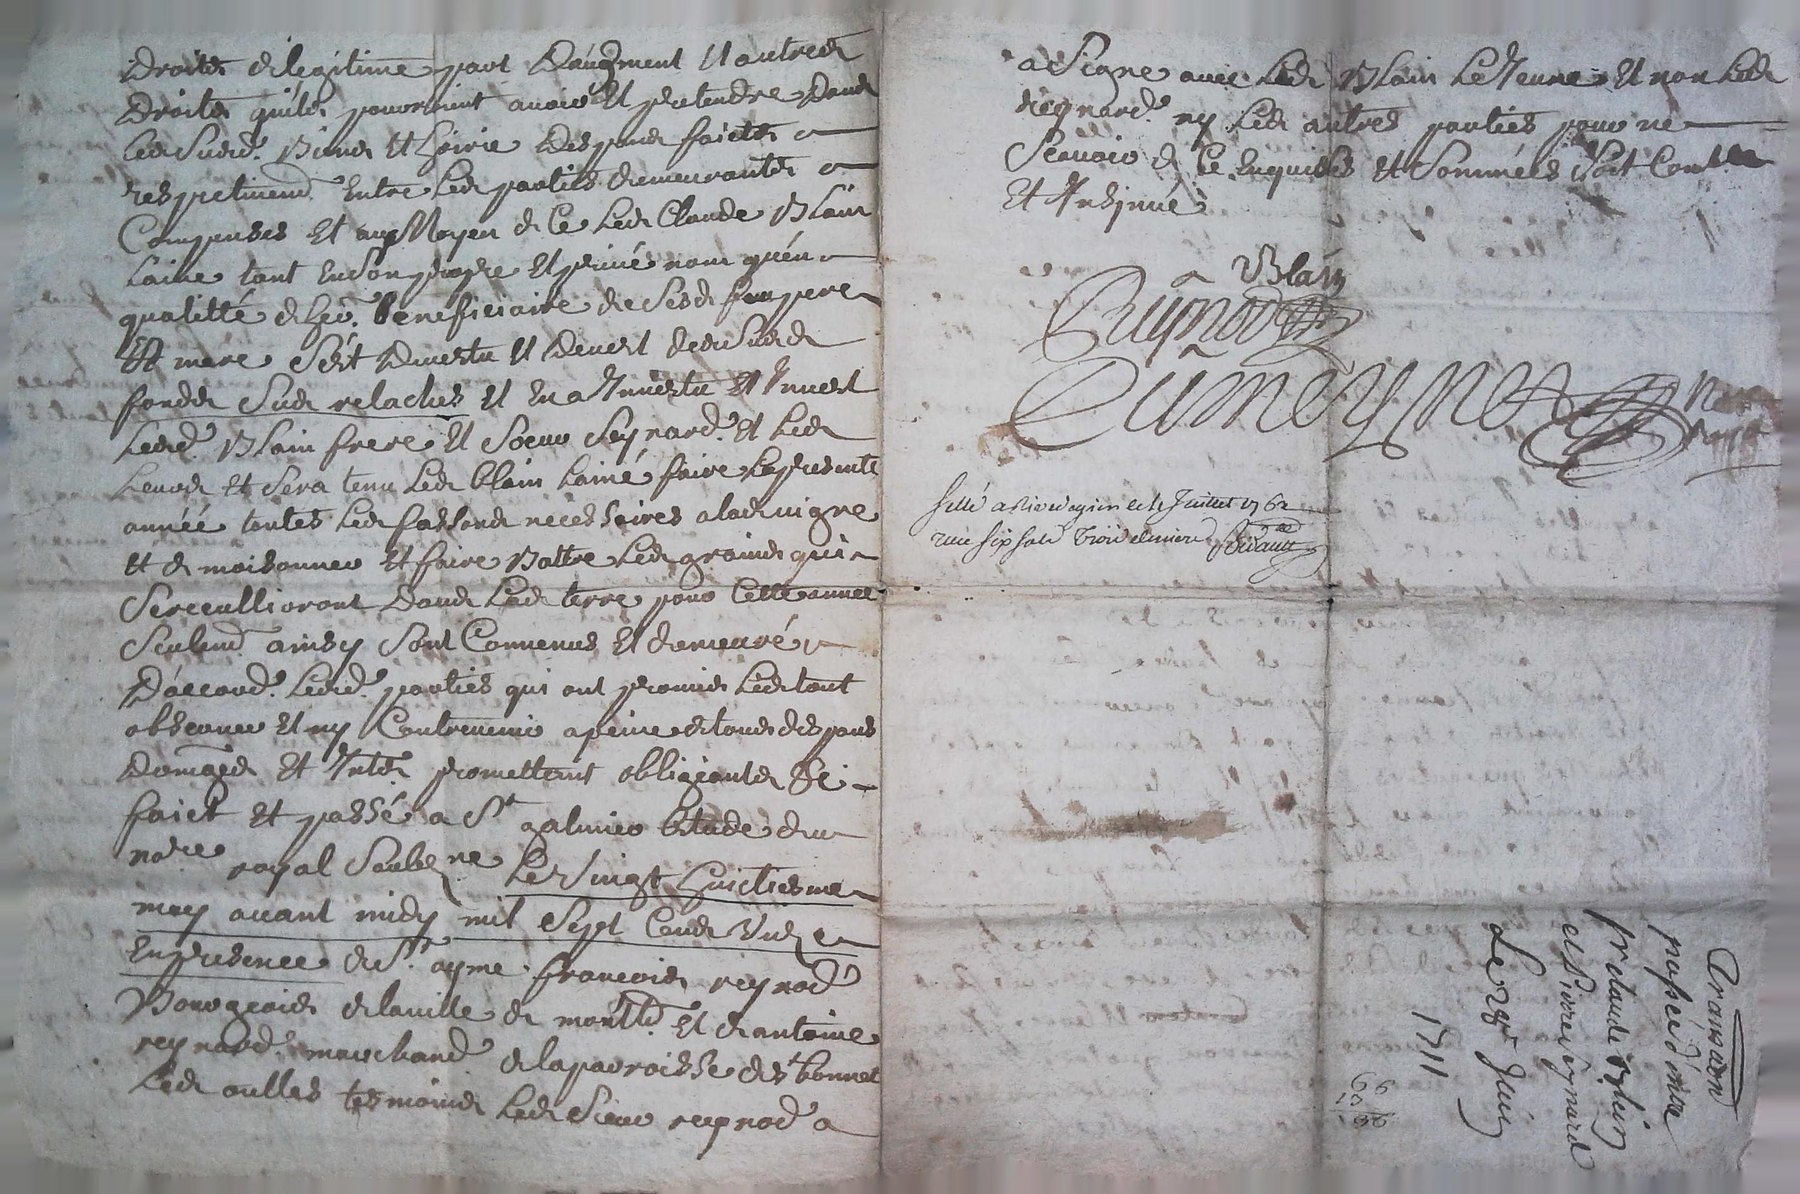 Droits de legitime part D'augment Et autres
Droits quils pourroint avoir Et pretendre Dans
Lesd susd. Biens Et hoirie Desquels faictes
respectivemt Entre Les parties demeurantes
Compenses Et au Moyen de Ce Led Claude Blain
Laine tant En son propre Et privé nom qu'en
qualitté d'her. beneficiaire de sesd feu pere
Et mere s'est Devestu Et Devest desd susd
fondes susd relaches Et En a Investu Et Invest
Lesd. Blain frere Et soeur Reynard. Et Led
Et sera tenu Led blain Lainé faire La presente
année toutes Les fassons necessaires a lad vigne
Et de moisonner Et faire Battre Les grains qui
se recullioront Dans Lad terre pour Cette année
seulemt ainsy sont Convenus Et demeuré
D'accord. Lesd. parties qui ont promis Led tout
observer Et ny Contrevenir a peine de tous despans
Domages Et Intes promettens obligeantes &c
faict Et passé a St galmier Estude du
nore royal soubzne Le Vingt huictiesme
may avant midy mil sept Cens unze
En presence de Sr. ayme françois reynod
Bourgeois de la ville de montb Et de antoine
reynard. marchand de la parroisse de st bonnet
Les oulles tesmoins Led sieur reynod a
a signe avec Led Blain Le Jeune Et non Led
reynard. ny Les autres parties pour ne
scavoir de Ce Enquises et sommées soit Contlle
Et Insinué
Blain
Reynod
Dumeynes
sellé a le Juillet 1762
six trois
Transaction
passée d'entre
pr claude Blain
et pierre reynard
Le 29 Juin
1711